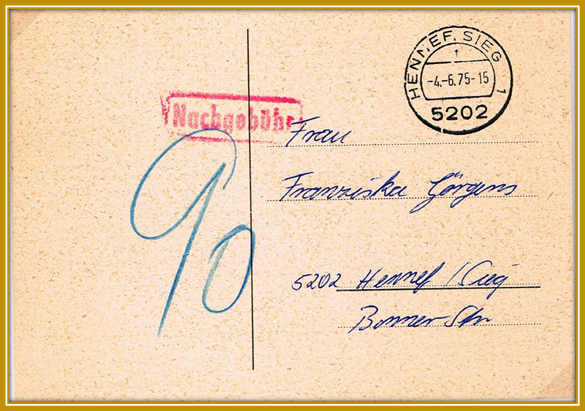 HENNEF, SIEG 1
-4.-6.75-15
5202
Nachgebühr
90
Frau
Franziska Görgens
5202 Hennef / Sieg
Bonner Str.